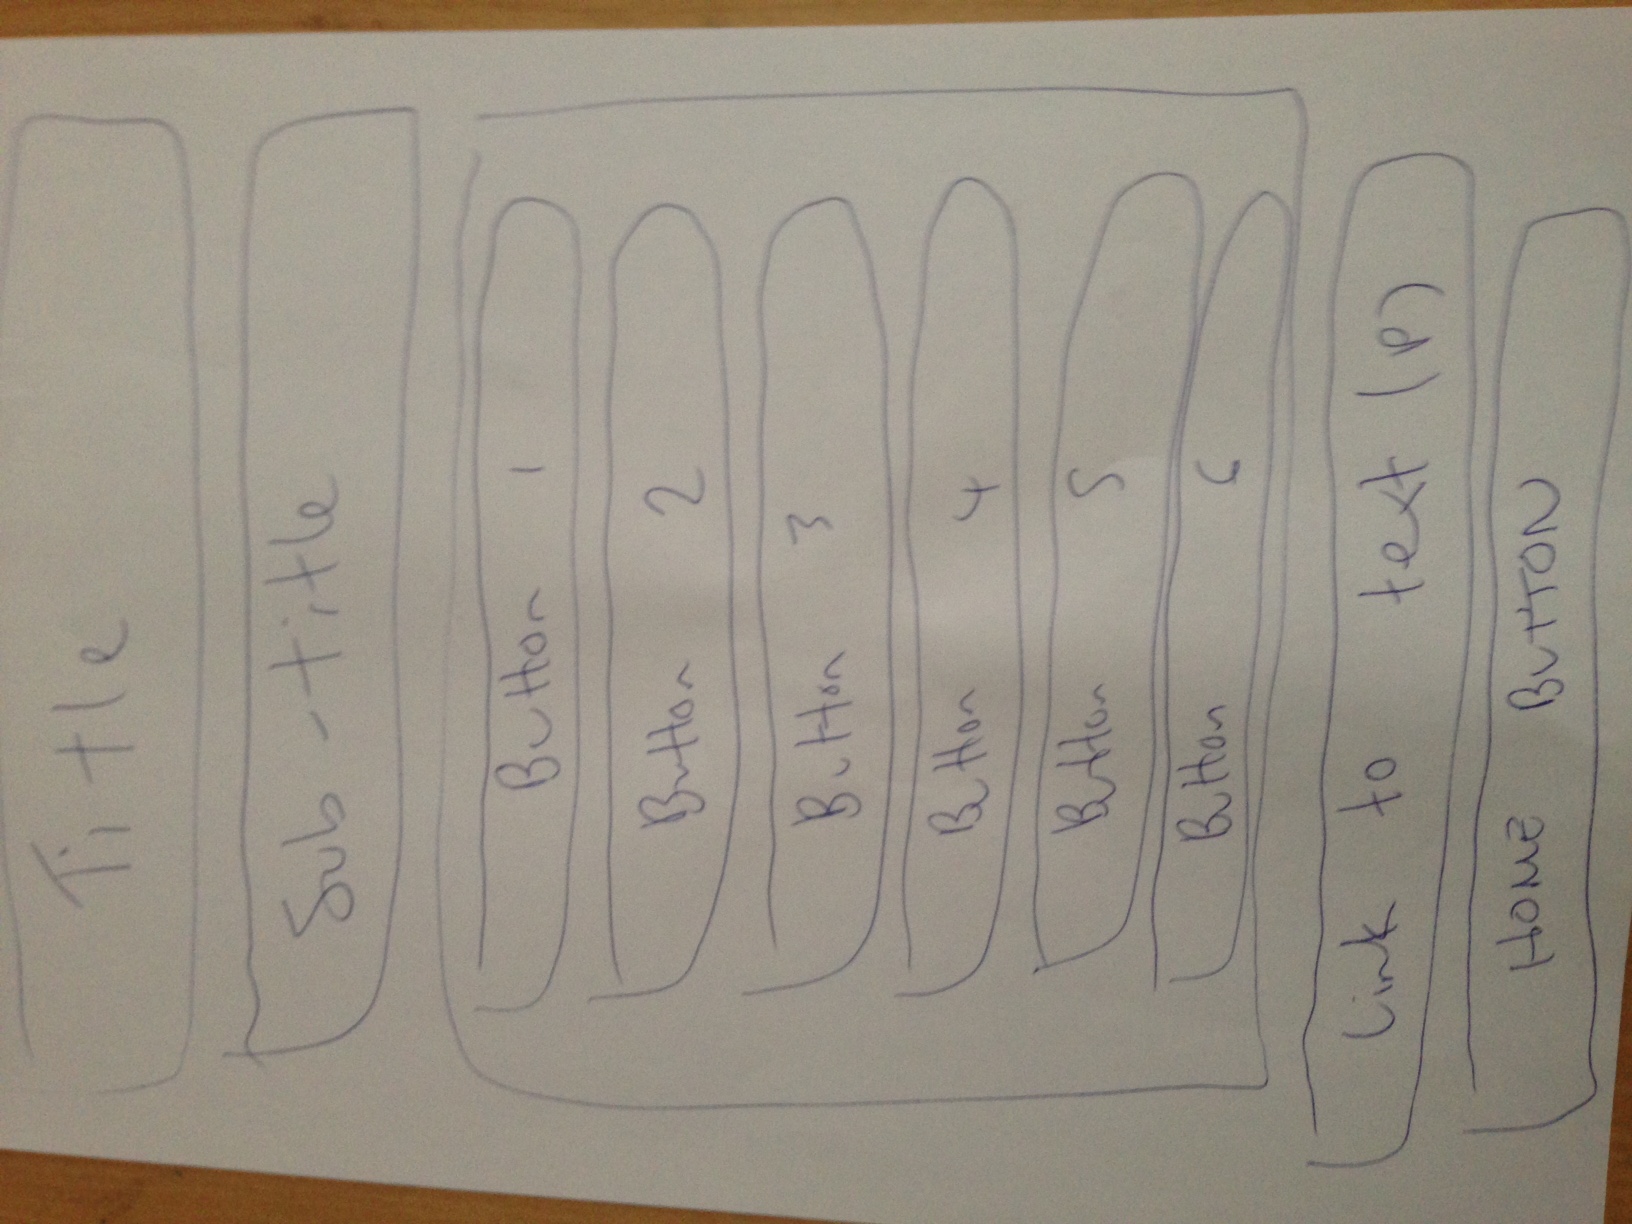 Title
Sub-title
Button 1
Button 2
Button 3
Button 4
Button 5
Button 6
Link to text (P)
HOME BUTTON